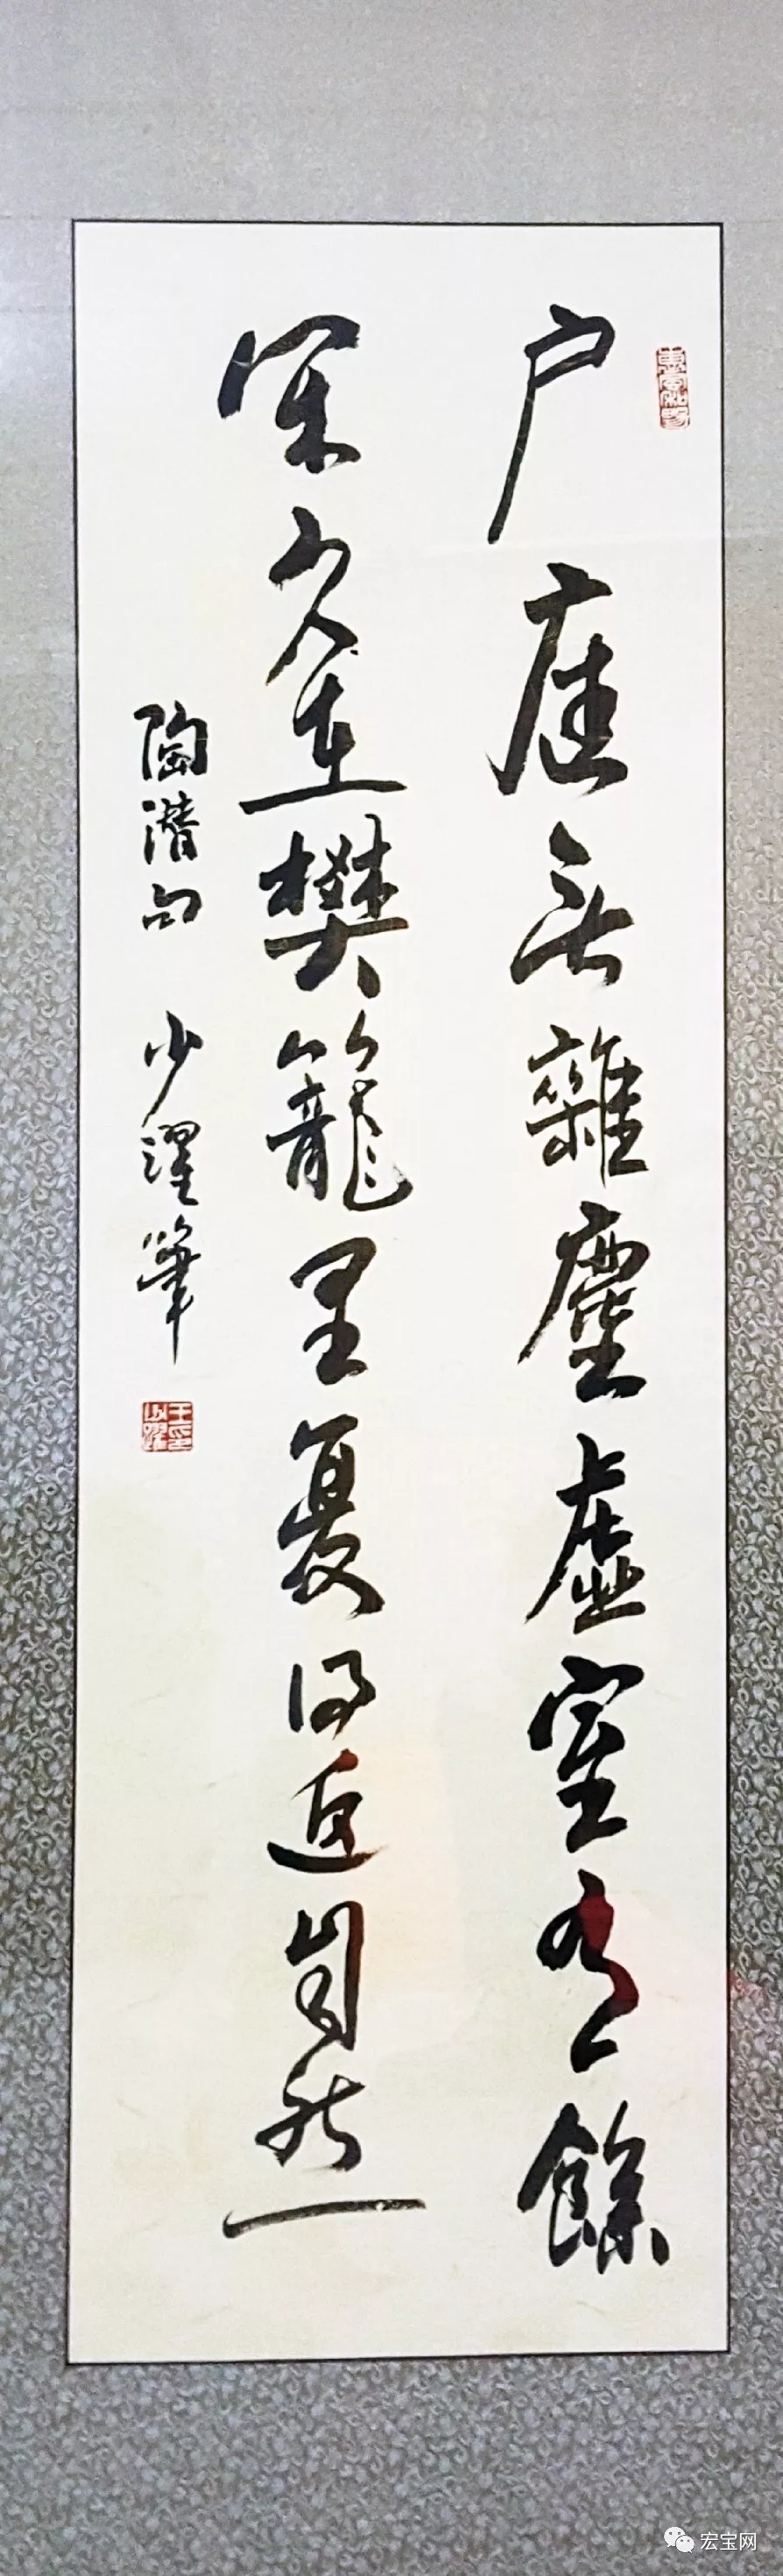 户庭无雜塵虚室有餘
闲久在樊籠里复得返自然
陶潜句 少濯筆
宏宝网